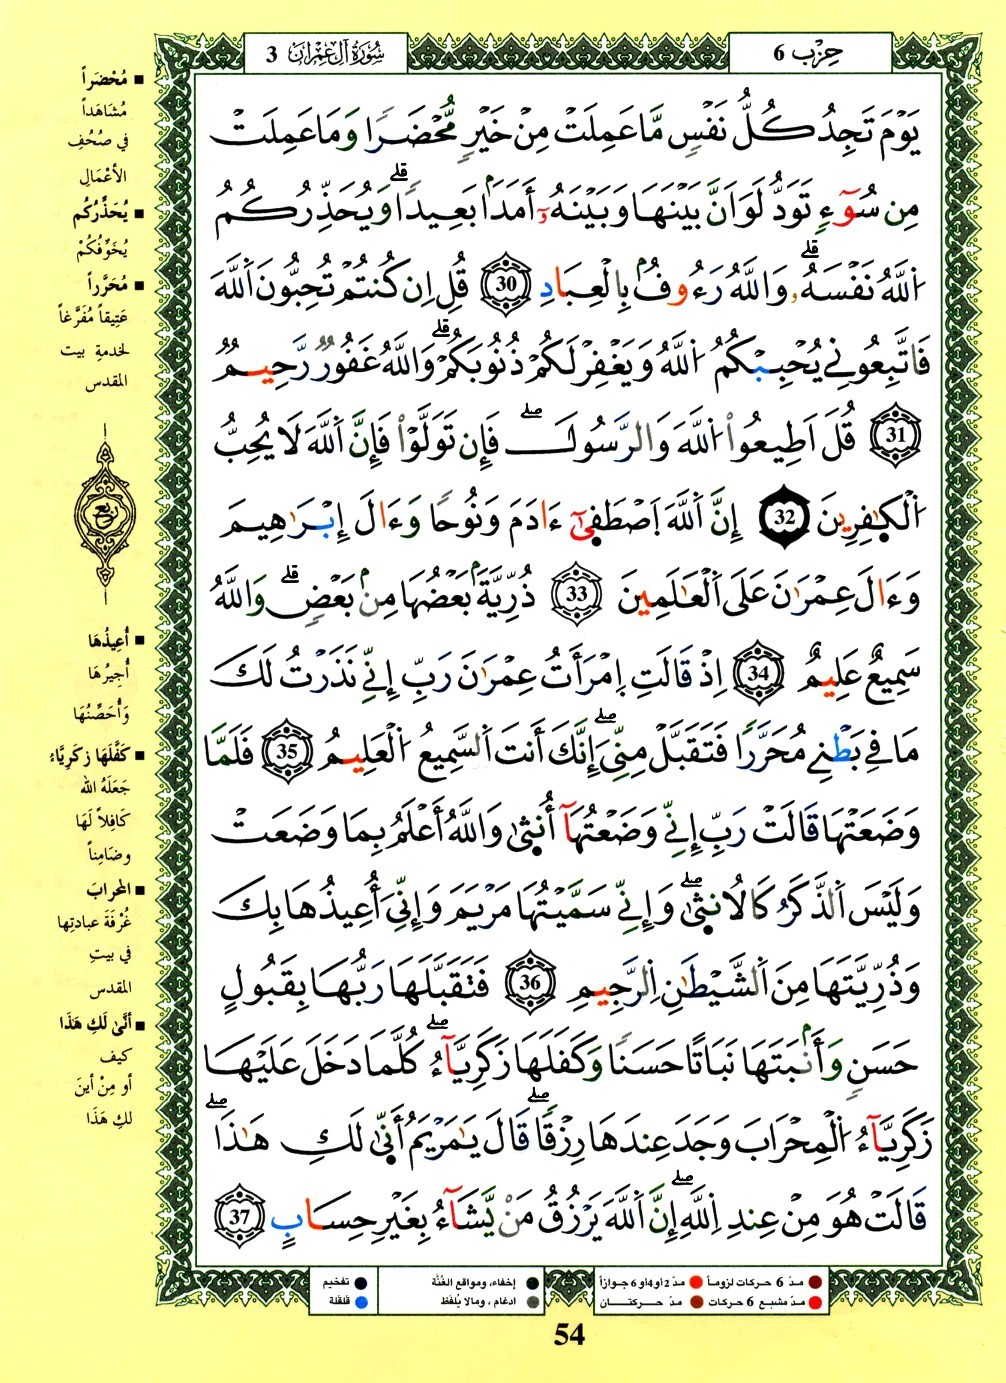 حِزْب 6
سُورَةُ آلِ عِمْرَان 3
يَوْمَ تَجِدُ كُلُّ نَفْسٍ مَّا عَمِلَتْ مِنْ خَيْرٍ مُّحْضَرًا وَمَا عَمِلَتْ
مِن سُوٓءٍ تَوَدُّ لَوَ اَنَّ بَيْنَهَا وَبَيْنَهُۥٓ أَمَدًۢا بَعِيدًا ۗ وَيُحَذِّرُكُمُ
اُ۬للَّهُ نَفْسَهُۥ ۗ وَاللَّهُ رَءُوفُۢ بِالْعِبَادِ 30 قُلِ اِن كُنتُمْ تُحِبُّونَ اَ۬للَّهَ
فَاتَّبِعُونِے يُحْبِبْكُمُ اُ۬للَّهُ وَيَغْفِرْ لَكُمْ ذُنُوبَكُمْ ۗ وَاللَّهُ غَفُورٌ رَّحِيمٌ
31 قُلَ اَطِيعُواْ اُ۬للَّهَ وَالرَّسُولَ ۖ فَإِن تَوَلَّوْاْ فَإِنَّ اَ۬للَّهَ لَا يُحِبُّ
اُ۬لْكٰفِرِينَ 32 إِنَّ اَ۬للَّهَ اَ۪صْطَفٰىٓ ءَادَمَ وَنُوحًا وَءَالَ إِبْرَٰهِيمَ
وَءَالَ عِمْرَٰنَ عَلَى اَ۬لْعَٰلَمِينَ 33 ذُرِّيَّةَۢ بَعْضُهَا مِنۢ بَعْضٍ ۗ وَاللَّهُ
سَمِيعٌ عَلِيمٌ 34 اِذْ قَالَتِ اِ۪مْرَأَتُ عِمْرَٰنَ رَبِّ إِنِّے نَذَرْتُ لَكَ
مَا فِے بَطْنِے مُحَرَّرًا فَتَقَبَّلْ مِنِّيَ ۖ إِنَّكَ أَنتَ اَ۬لسَّمِيعُ اُ۬لْعَلِيمُ 35 فَلَمَّا
وَضَعَتْهَا قَالَتْ رَبِّ إِنِّے وَضَعْتُهَآ أُنث۪ىٰ وَاللَّهُ أَعْلَمُ بِمَا وَضَعَتْ
وَلَيْسَ اَ۬لذَّكَرُ كَالُانث۪ىٰ ۖ وَإِنِّے سَمَّيْتُهَا مَرْيَمَ وَإِنِّيَ أُعِيذُهَا بِكَ
وَذُرِّيَّتَهَا مِنَ اَ۬لشَّيْطَٰنِ اِ۬لرَّجِيمِ 36 فَتَقَبَّلَهَا رَبُّهَا بِقَبُولٍ
حَسَنٍ وَأَنۢبَتَهَا نَبَاتًا حَسَنًا وَكَفَلَهَا زَكَرِيَّآءُ ۖ كُلَّمَا دَخَلَ عَلَيْهَا
زَكَرِيَّآءُ اُ۬لْمِحْرَابَ وَجَدَ عِندَهَا رِزْقًا ۖ قَالَ يَٰمَرْيَمُ أَنّ۪ىٰ لَكِ هَٰذَا ۖ
قَالَتْ هُوَ مِنْ عِندِ اِ۬للَّهِ ۖ إِنَّ اَ۬للَّهَ يَرْزُقُ مَنْ يَّشَآءُ بِغَيْرِ حِسَابٍ 37
■ مُحْضَراً
مُشَاهَداً
في صُحُفِ
الأَعْمَالِ
■ يُحَذِّرُكُم
يُخَوِّفُكُمْ
■ مُحَرَّراً
عَتِيقاً مُفَرَّغاً
لخدمةِ بيت
المقدس
ربع
■ أُعِيذُهَا
أُجِيرُهَا
وَأُحَصِّنُهَا
■ كَفَّلَهَا زكَرِيَّاءُ
جَعَلَهُ الله
كَافِلاً لَهَا
وضَامِناً
■ المحراب
غُرْفَةَ عبادتِها
في بيتِ
المقدس
■ أنَّىٰ لَكِ هَذَا
كيف
أو مِنْ أينَ
لكِ هَذَا
مدّ 6 حركات لزوماً مدّ 2 أو 4 أو 6 جوازاً
مدّ مشبع 6 حركات مدّ حركتان
إخفاء، ومواقع الغُنَّة
ادغام، ومالا يُلفَظ
تفخيم
قلقلة
54